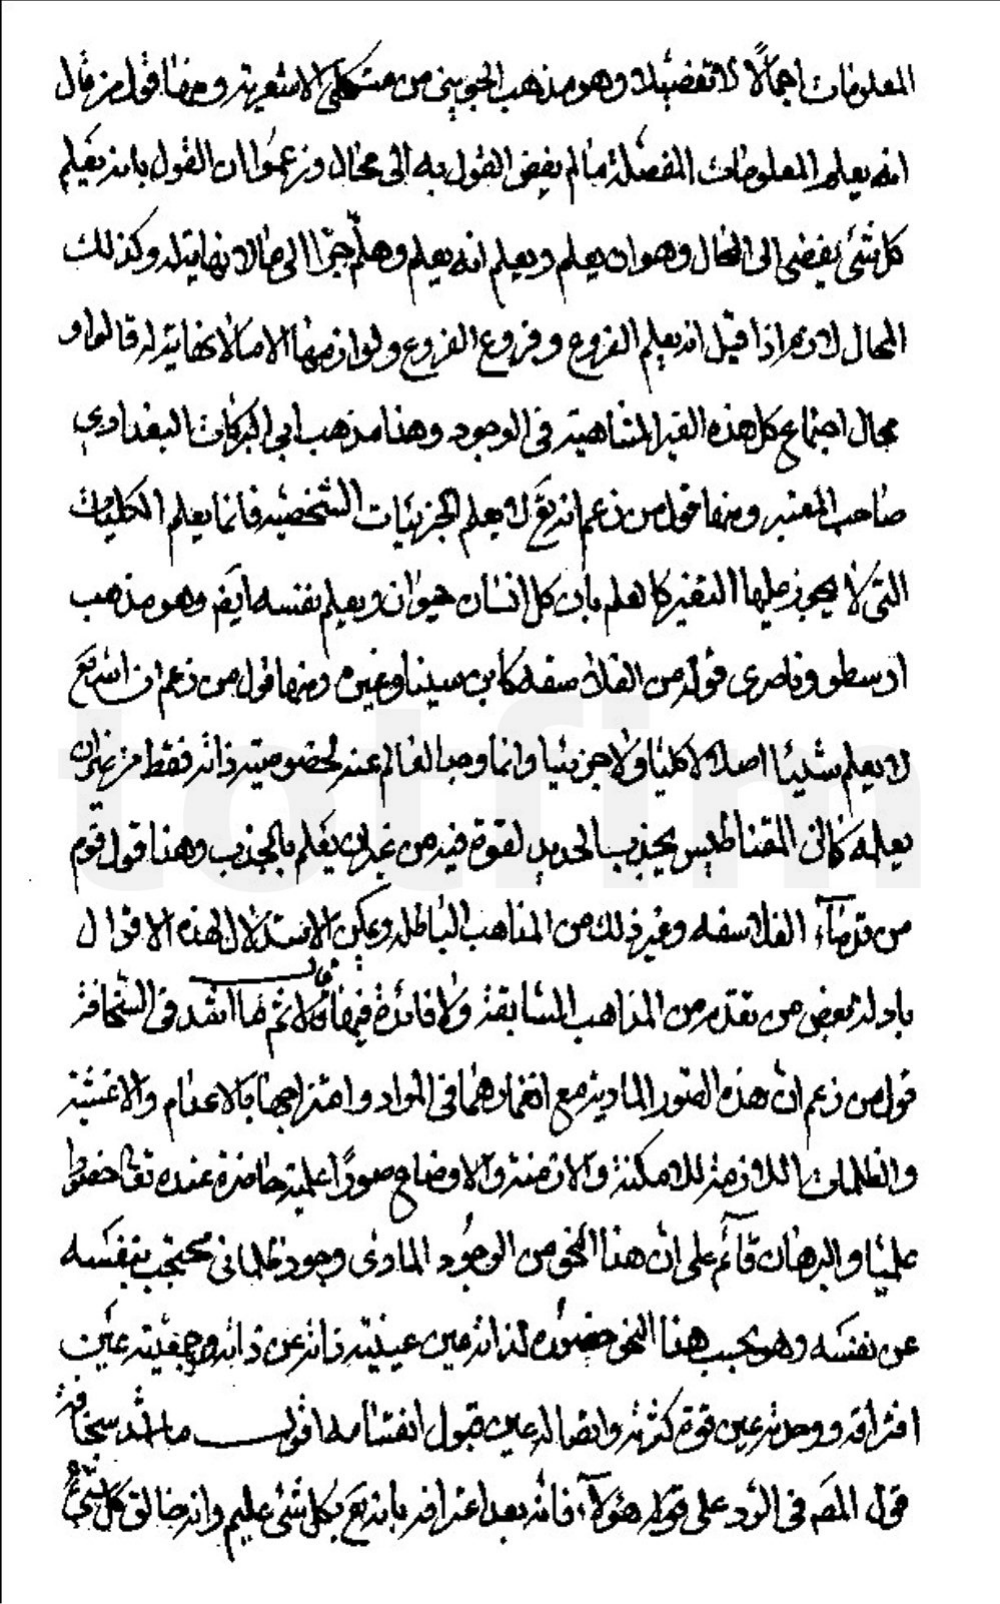 المعلومات اجمالا لا تفصيلا وهو مذهب الجويني من متكلمي الاشعرية ومنها قول من قال
انه يعلم المعلومات المفصلة ما لم يفض القول به الى محال وزعموا ان القول بانه يعلم
كل شئ يفضى الى المحال وهو ان يعلم ويعلم انه يعلم وهلم جرا الى ما لا نهاية له وكذلك
المحال لازم اذا قيل انه يعلم الفروع وفروع الفروع ولوازمها الى ما لا نهاية له قالوا و
محال اجتماع كل هذه الغير المتناهية فى الوجود وهذا مذهب ابى البركات البغدادي
صاحب المعتبر ومنها قول من زعم انه تع لا يعلم الجزئيات الشخصيه فانما يعلم الكليات
التى لا يجوز عليها التغير كالعلم بان كل انسان حيوان ويعلم نفسه ايض وهو مذهب
ارسطو وناصرى قوله من الفلاسفه كابن سينا وغيره ومنها قول من زعم ان الله تع
لا يعلم شيئا اصلا لا كليا ولا جزئيا وانما وجد العالم عنه لخصوصية ذاته فقط من غير ان
يعلمه كما ان المقناطيس يجذب الحديد لقوة فيه من غير ان يعلم بالجذب وهذا قول قوم
من قدماء الفلاسفه وغير ذلك من المذاهب الباطلة ويمكن الاستدلال لهذه الاقوال
بادلة بعض من تقدم من المذاهب السابقة ولا فائدة فيها قال ثم ما اشد فى السخافة
قول من زعم ان هذه الصور المادية مع انغمارها فى المواد وامتزاجها بالاعدام والاغشية
والظلمات اللازمة للامكنة والازمنة والاوضاع صورا علمية حاضرة عنده تعالى حضورا
علميا والبرهان قائم على ان هذا النحو من الوجود المادى وجود ظلمانى محتجب بنفسه
عن نفسه وهو بحسب هذا النحو حضوره لذاته عين غيبته ذاته عن ذاته وجمعيته عين
افتراقه ووحدته عين قوة كثرته واتصاله عين قبول انقسامه اقول ما اشد سخافة
قول المص فى الرد على قول هؤلاء فانه بعد اعترافه بانه تع بكل شئ عليم وانه خالق كل شئ